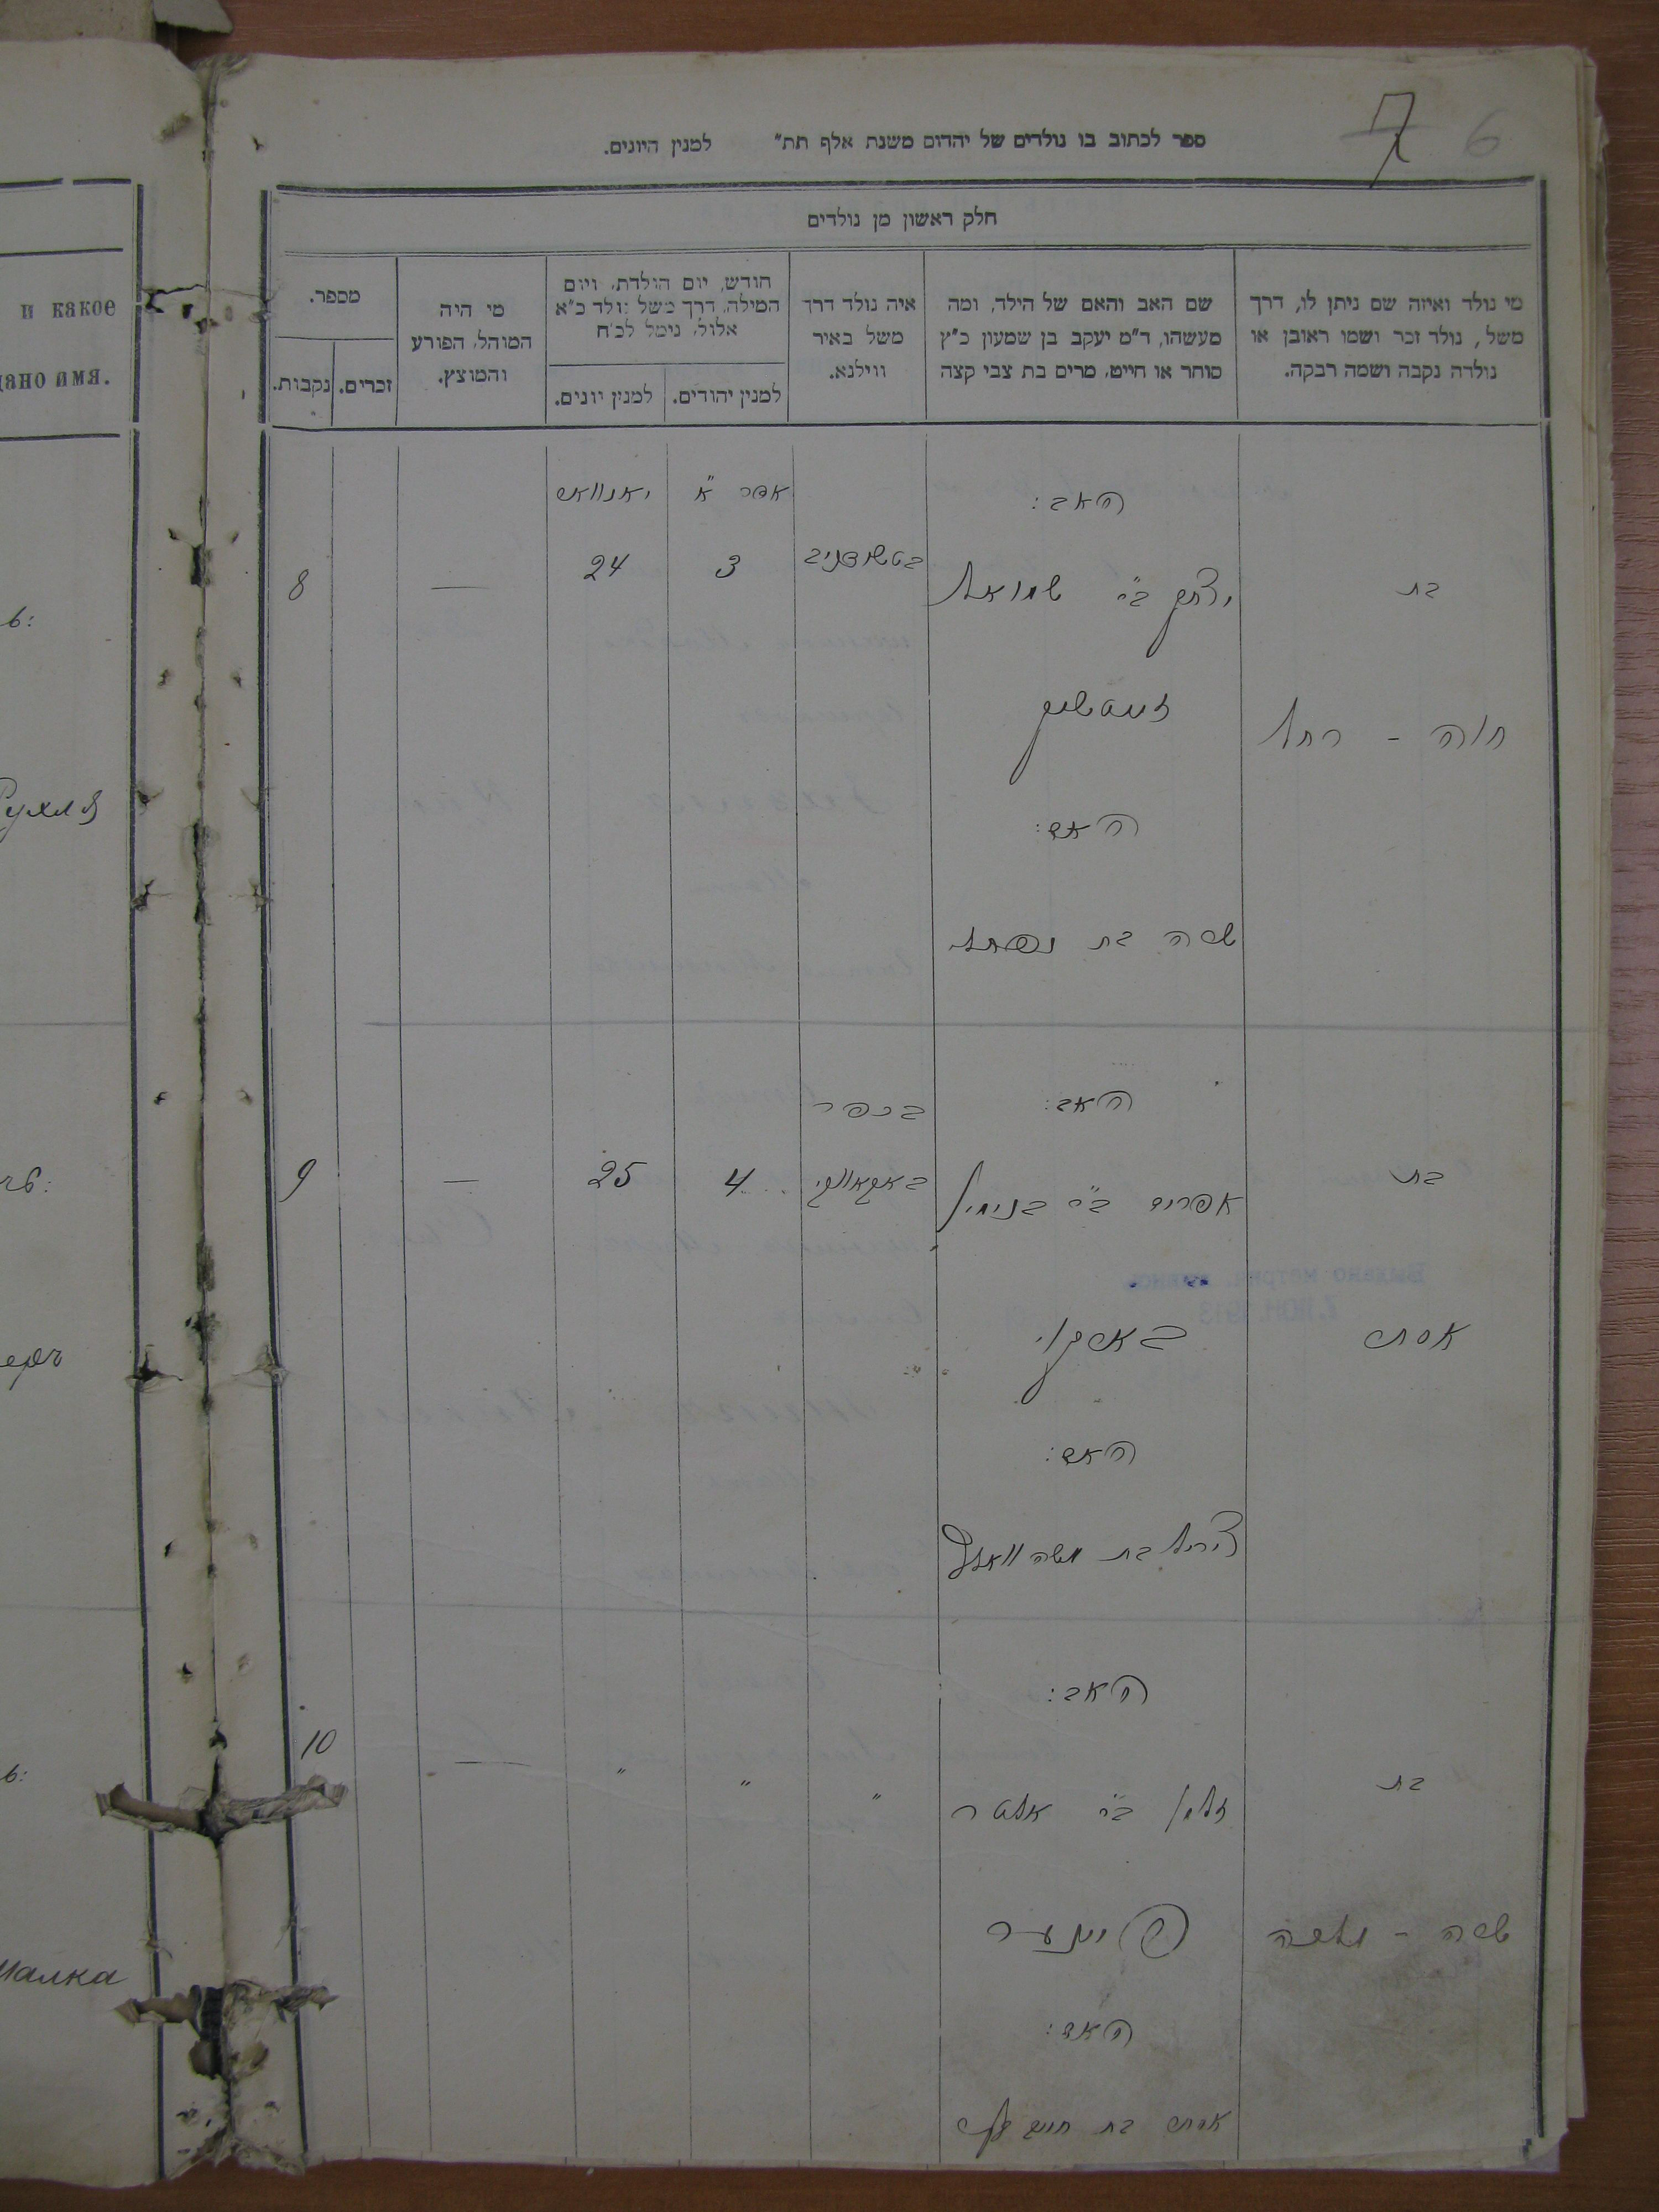 7 6
ספר לכתוב בו נולדים של יהדום משנת אלף תת״ למנין היונים.
חלק ראשון מן נולדים
מי נולד ואיזה שם ניתן לו, דרך
משל, נולד זכר ושמו ראובן או
נולדה נקבה ושמה רבקה.
שם האב והאם של הילד, ומה
מעשהו, ד״מ יעקב בן שמעון כ״ץ
סוחר או חייט, מרים בת צבי קצה
איה נולד דרך
משל באיר
ווילנא.
חודש, יום הולדת, ויום
המילה, דרך משל נולד כ״א
אלול, נימל לכ״ח
למנין יהודים.
למנין יונים.
מי היה
המוהל, הפורע
והמוצץ.
מספר.
זכרים.
נקבות.
и какое
дано имя.
האב:
אדר א״
יאנוואר
בת
יצחק ב״ר שמואל
3
24
—
8
חוה - רחל
האם:
שרה בת
האב:
בכפר
בת
אפרים ב״ר בנימין
4
25
—
9
אסתר
האם:
צירל בת משה
האב:
בת
זלמן ב״ר אלטר
״
״
״
—
10
שרה - מלכה
האם:
אסתר בת חיים
ь:
Рухля
ь:
малка